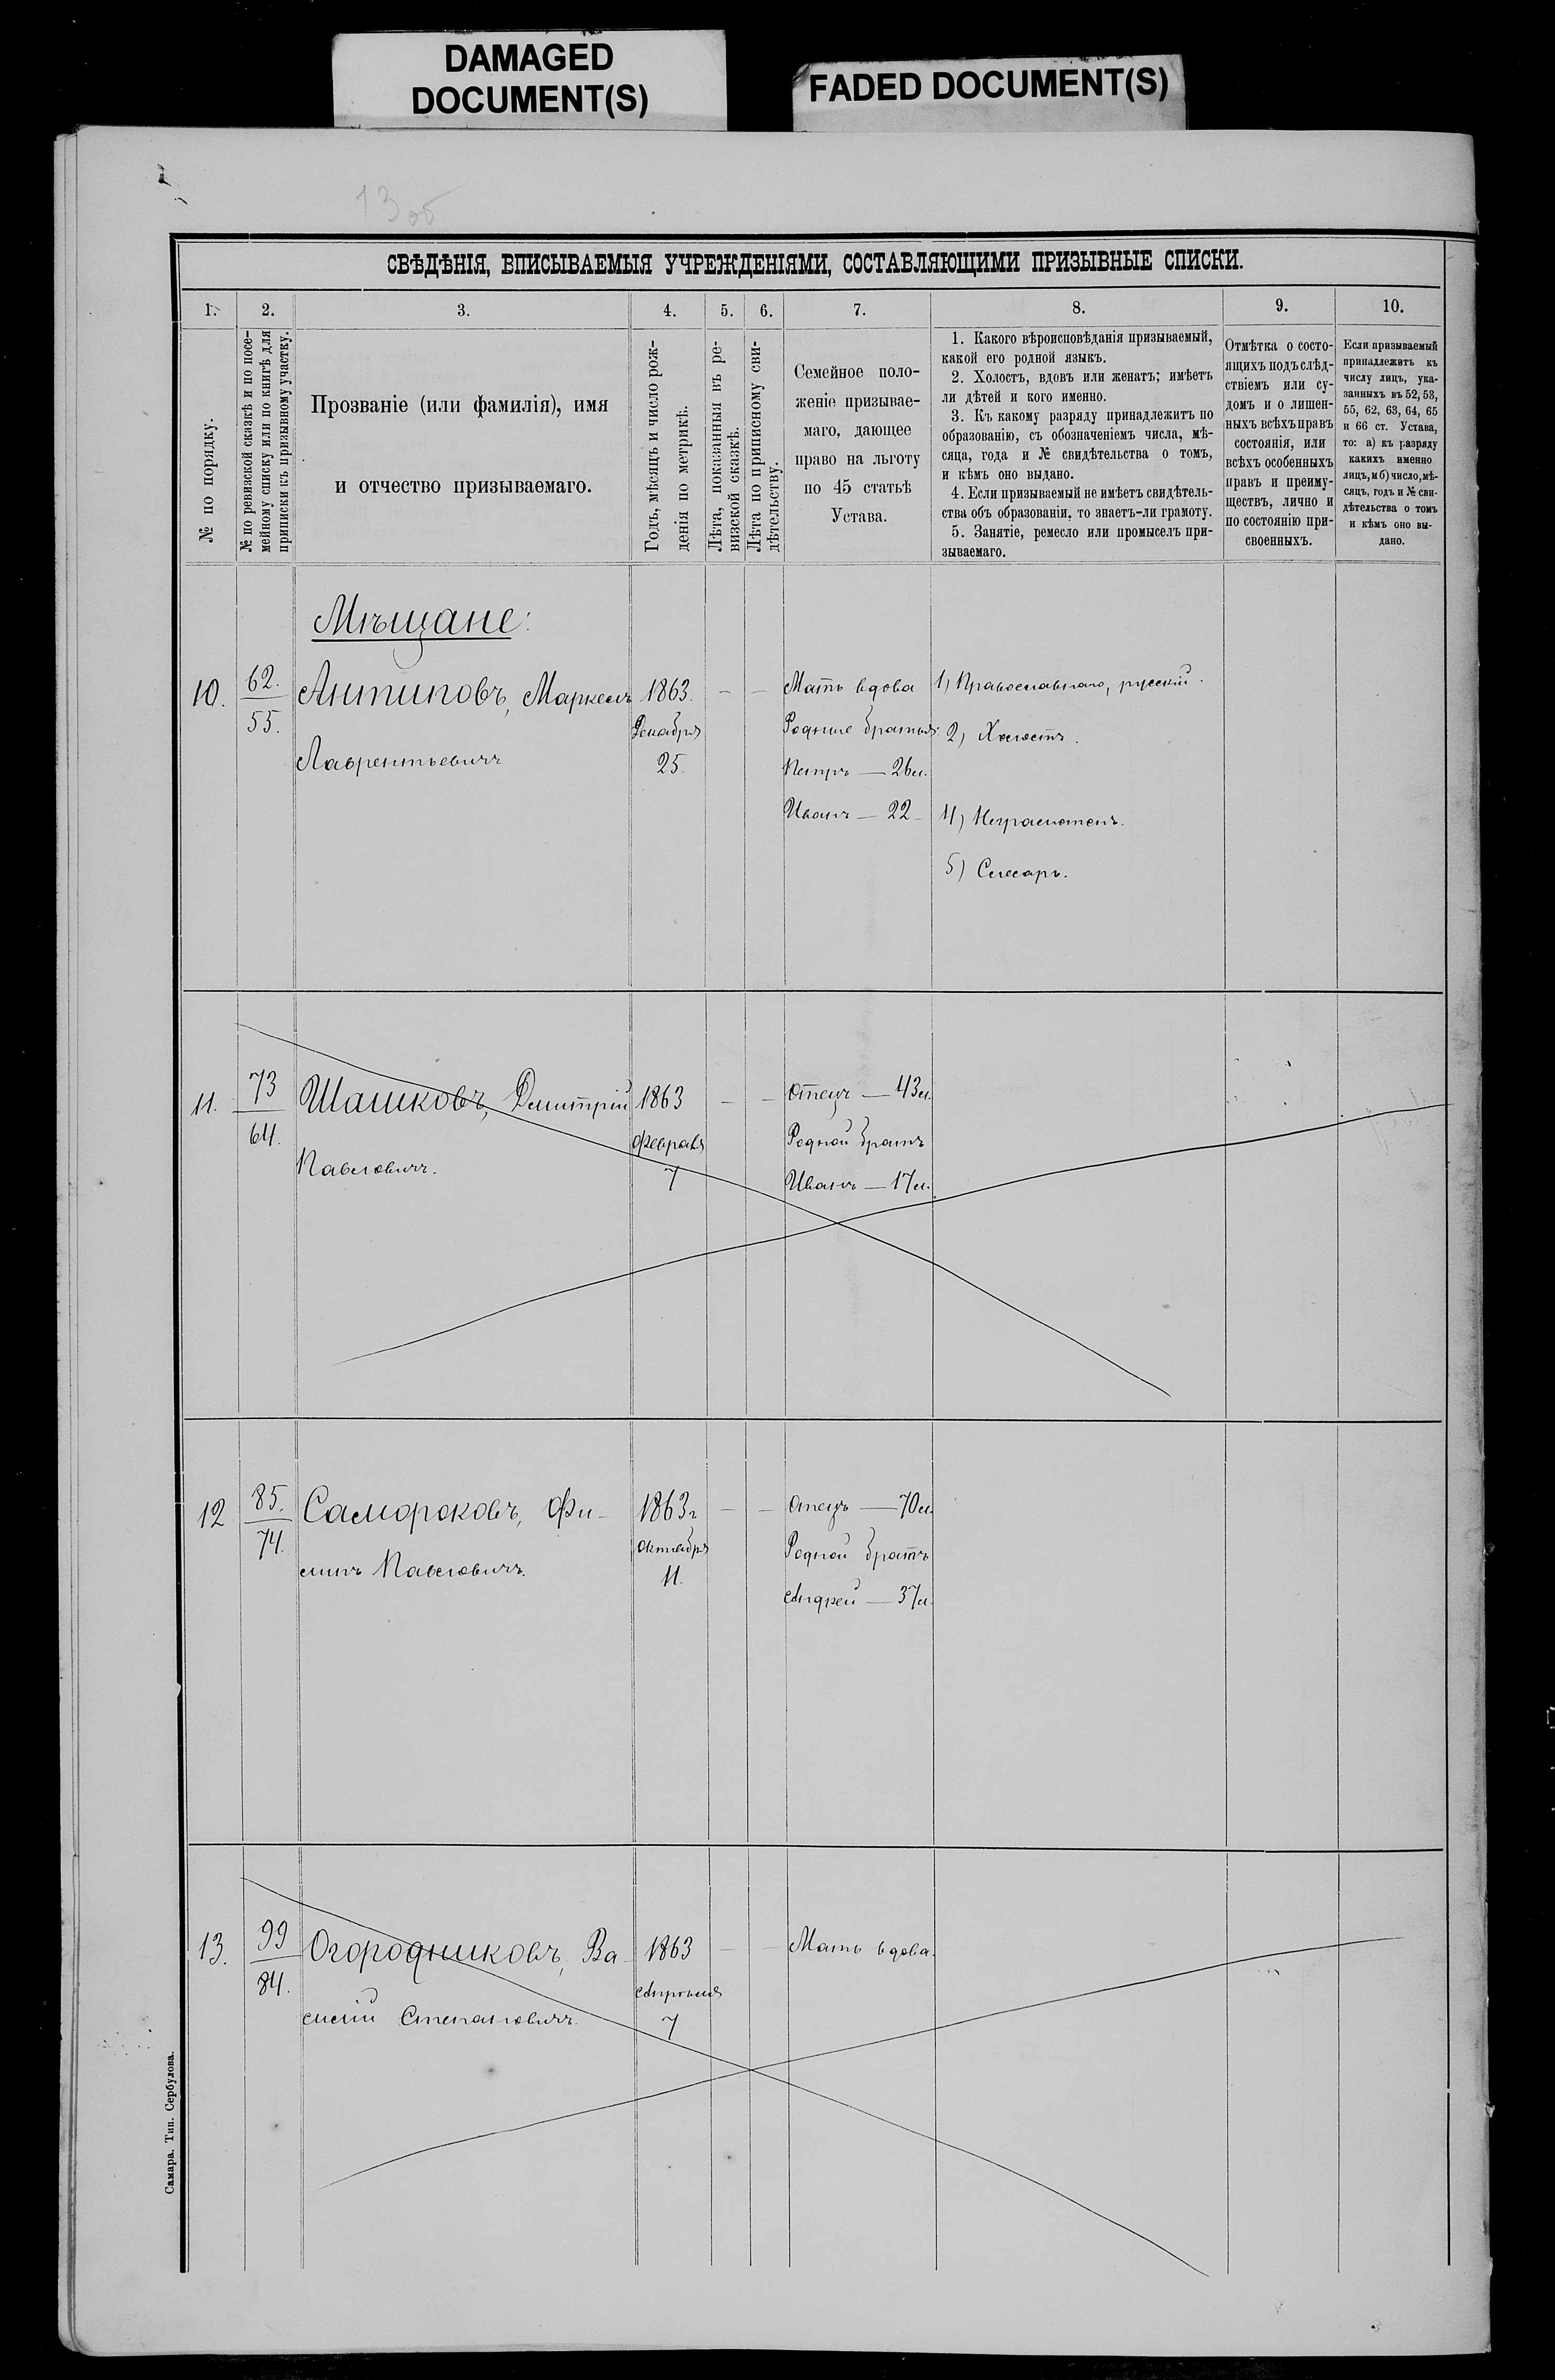 DAMAGED
DOCUMENT(S)
FADED DOCUMENT(S)
13 об
СВѢДѢНІЯ, ВПИСЫВАЕМЫЯ УЧРЕЖДЕНІЯМИ, СОСТАВЛЯЮЩИМИ ПРИЗЫВНЫЕ СПИСКИ.
1. 2. 3. 4. 5. 6. 7. 8. 9. 10.
№ по порядку.
№ по ревизской сказкѣ и по посе-
мейному списку или по книгѣ для
приписки къ призывному участку.
Прозваніе (или фамилія), имя
и отчество призываемаго.
Годъ, мѣсяцъ и число рож-
денія по метрикѣ.
Лѣта, показанныя въ ре-
визской сказкѣ.
Лѣта по приписному сви-
дѣтельству.
Семейное поло-
женіе призывае-
маго, дающее
право на льготу
по 45 статьѣ
Устава.
1. Какого вѣроисповѣданія призываемый,
какой его родной языкъ.
2. Холостъ, вдовъ или женатъ; имѣетъ
ли дѣтей и кого именно.
3. Къ какому разряду принадлежитъ по
образованію, съ обозначеніемъ числа, мѣ-
сяца, года и № свидѣтельства о томъ,
и кѣмъ оно выдано.
4. Если призываемый не имѣетъ свидѣтель-
ства объ образованіи, то знаетъ-ли грамоту.
5. Занятіе, ремесло или промыселъ при-
зываемаго.
Отмѣтка о состо-
ящихъ подъ слѣд-
ствіемъ или су-
домъ и о лишен-
ныхъ всѣхъ правъ
состоянія, или
всѣхъ особенныхъ
правъ и преиму-
ществъ, лично и
по состоянію при-
своенныхъ.
Если призываемый
принадлежитъ къ
числу лицъ, ука-
занныхъ въ 52, 53,
55, 62, 63, 64, 65
и 66 ст. Устава,
то: а) къ разряду
какихъ именно
лицъ, и б) число, мѣ-
сяцъ, годъ и № сви-
дѣтельства о томъ
и кѣмъ оно вы-
дано.
Мѣщане:
10. 62. Антиповъ, Маркелъ 1863. — — Мать вдова 1) Православнаго, русскій.
55. Декабря Родные братья: 2) Холостъ.
Лаврентьевичъ 25. Петръ — 26 л.
Иванъ — 22 — 4) Неграмотенъ.
5) Слесарь.
11. 73 Шашковъ, Дмитрій 1863 — — Отецъ — 43 л.
64. Февраля Родной братъ
Павловичъ. 7 Иванъ — 17 л.
12 85. Самороковъ, Фи- 1863 г — — Отецъ — 70 л.
74. Октября Родной братъ
липъ Павловичъ. 11. Андрей — 37 л.
13. 99 Огородниковъ, Ва- 1863 — — Мать вдова.
84. Апрѣля
силій Степановичъ. 7
Самара. Тип. Сербулова.